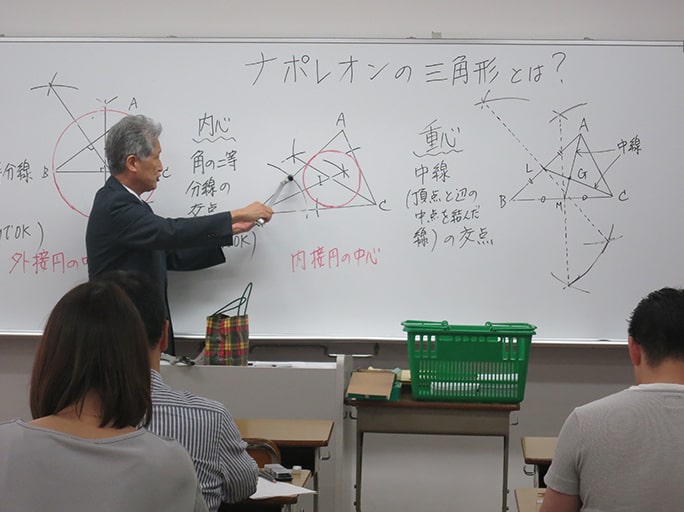 ナポレオンの三角形とは?
A
B
C
分線
OK)
外接円の
内心
角の二等
分線の
交点
OK)
A
I
C
内接円の中心
重心
中線
(頂点と辺の
中点を結んだ
線)の交点
A
中線
L
G
B
M
C